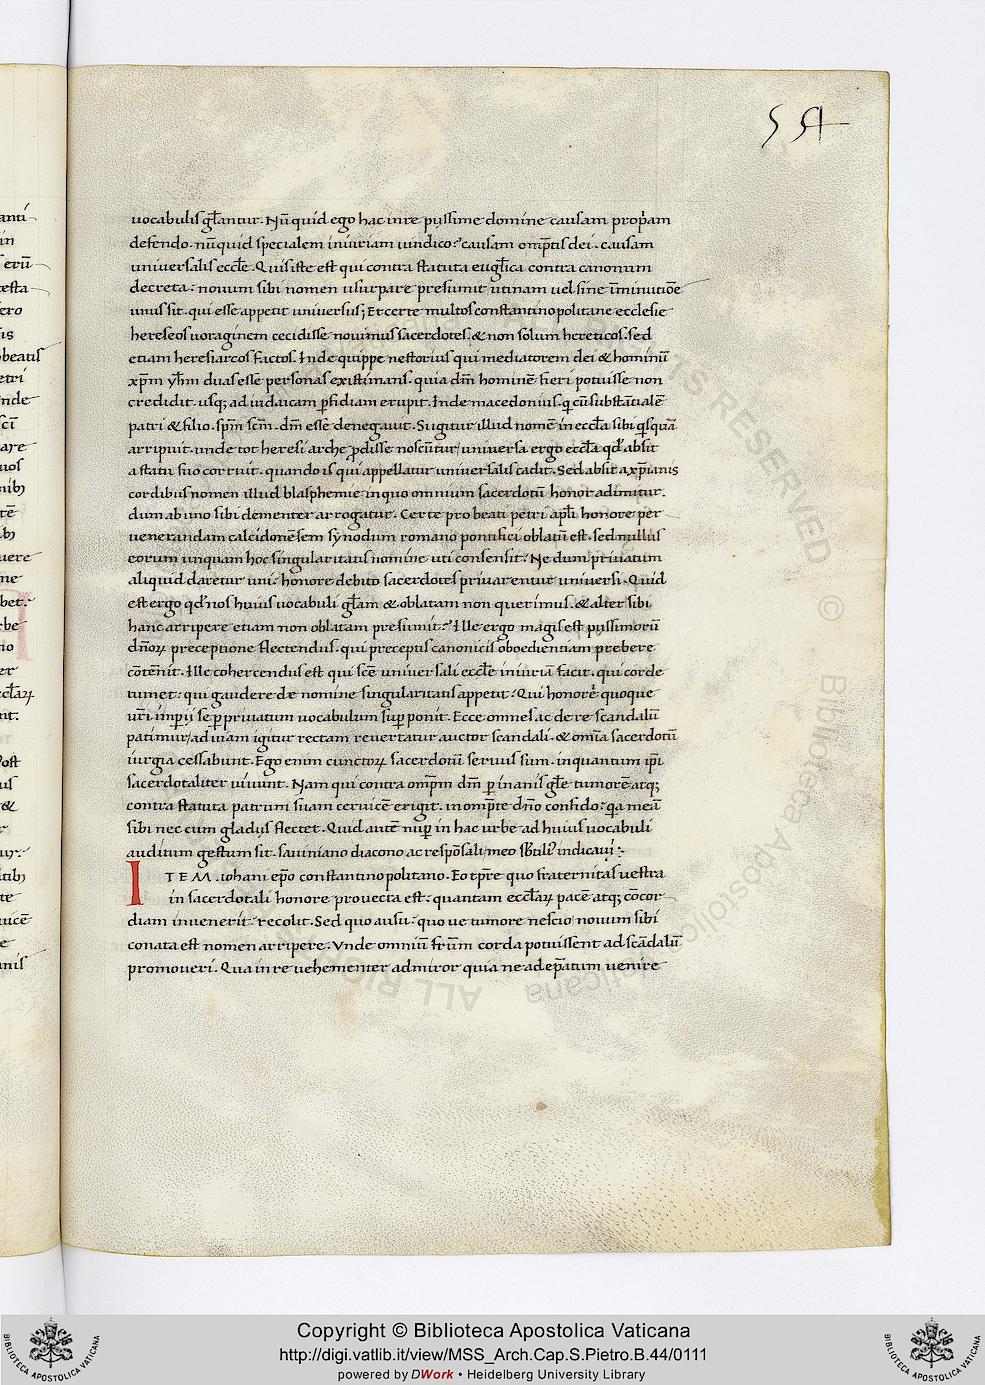 54
uocabulis gl̄antur. Nū quid ego hac in re pijssime domine causam prop̄am
defendo. nū quid specialem iniuriam uindico? causam omp̄tis dei. causam
uniuersalis eccl̄e. Quis iste est qui contra statuta eugl̄ica contra canonum
decreta: nouum sibi nomen usurpare presumit utinam uel sine īminutiōe
unus sit. qui esse appetit uniuersus; Et certe multos constantinopolitane ecclesie
hereseos uoraginem cecidisse nouimus sacerdotes. & non solum hereticos. sed
etiam heresiarcos factos. Inde quippe nestorius qui mediatorem dei & hominū
xp̄m yh̄m duas esse personas existimans. quia dm̄ hominē fieri potuisse non
credidit. usq; ad iudaicam ꝑfidiam erupit. Inde macedonius. q cū substātialē
patri & filio. sp̄m sc̄m. dm̄ esse denegauit. Si igitur illud nomē in eccl̄a sibi qisquā
arripuit. unde tot heresi arche ꝓdisse noscūtur/ uniuersa ergo eccl̄a qd̄ absit
a statu suo corruit. quando is qui appellatur uniuersalis cadit. Sed absit a xp̄ianis
cordibus nomen illud blasphemie in quo omnium sacerdotū honor adimitur.
dum ab uno sibi dementer arrogatur. Certe pro beati petri ap̄li honore per
uenerandam calcidonēsem synodum romano pontifici oblatū est. sed nullus
eorum unquam hoc singularitatis nomine uti consensit. Ne dum priuatum
aliquid daretur uni. honore debito sacerdotes priuarentur uniuersi. Quid
est ergo qd̄ nos huius uocabuli gl̄am & oblatam non querimus. & alter sibi
hanc arripere etiam non oblatam presumit? Ille ergo magis est pijssimorū
dn̄oꝝ preceptione flectendus. qui preceptis canonicis oboedientiam prebere
cōtēnit. Ille cohercendus est qui scē uniuersali eccl̄e iniuriā facit. qui corde
tumet: qui gaudere de nomine singularitatis appetit. Qui honorē quoque
ur̄i imp̄ij se ꝑ priuatum uocabulum suꝑ ponit. Ecce omnes ac de re scandalū
patimur/ ad uiam igitur rectam reuertatur auctor scandali. & om̄ia sacerdotū
iurgia cessabunt. Ego enim cunctoꝝ sacerdotū seruus sum. inquantum ip̄i
sacerdotaliter uiuunt. Nam qui contra omp̄m dm̄ ꝑ inanis gl̄e tumorē atq;
contra statuta patrum suam ceruicē erigit. in omp̄te dn̄o confido: qa meā
sibi nec cum gladijs flectet. Quid autē nuꝑ in hac urbe ad huius uocabuli
auditum gestum sit. sauiniano diacono ac respōsali/ meo sb̄tilit̄ indicaui :·
ITEM. iohani ep̄o constantinopolitano. Eo tp̄re quo fraternitas uestra
in sacerdotali honore prouecta est. quantam eccl̄aꝝ pacē atq; cōcor
diam inuenerit recolit. Sed quo ausu. quo ue tumore nescio nouum sibi
conata est nomen arripere. Vnde omniū fr̄um corda potuissent ad scādalū
promoueri. Qua in re uehementer admiror quia ne ad ep̄atum uenire
Copyright © Biblioteca Apostolica Vaticana
http://digi.vatlib.it/view/MSS_Arch.Cap.S.Pietro.B.44/0111
powered by DWork • Heidelberg University Library